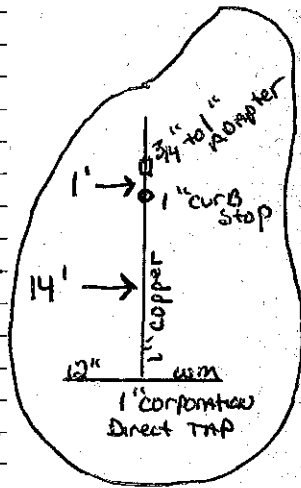 3/4" to 1"
ADAPTER
1'
1" CURB
STOP
14'
1" COPPER
12" WM
1" CORPORATION
DIRECT TAP